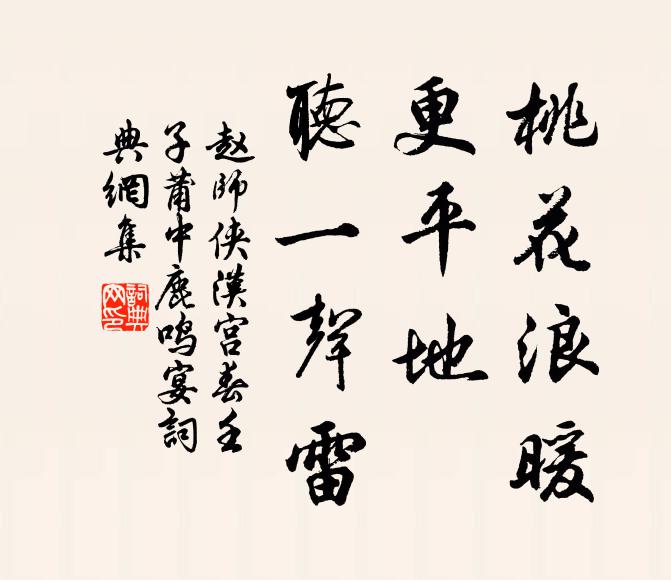 桃花浪暖
更平地
聽一聲雷
赵師侠漢宮春壬
子莆中鹿鸣宴詞
典網集
詞典
网印